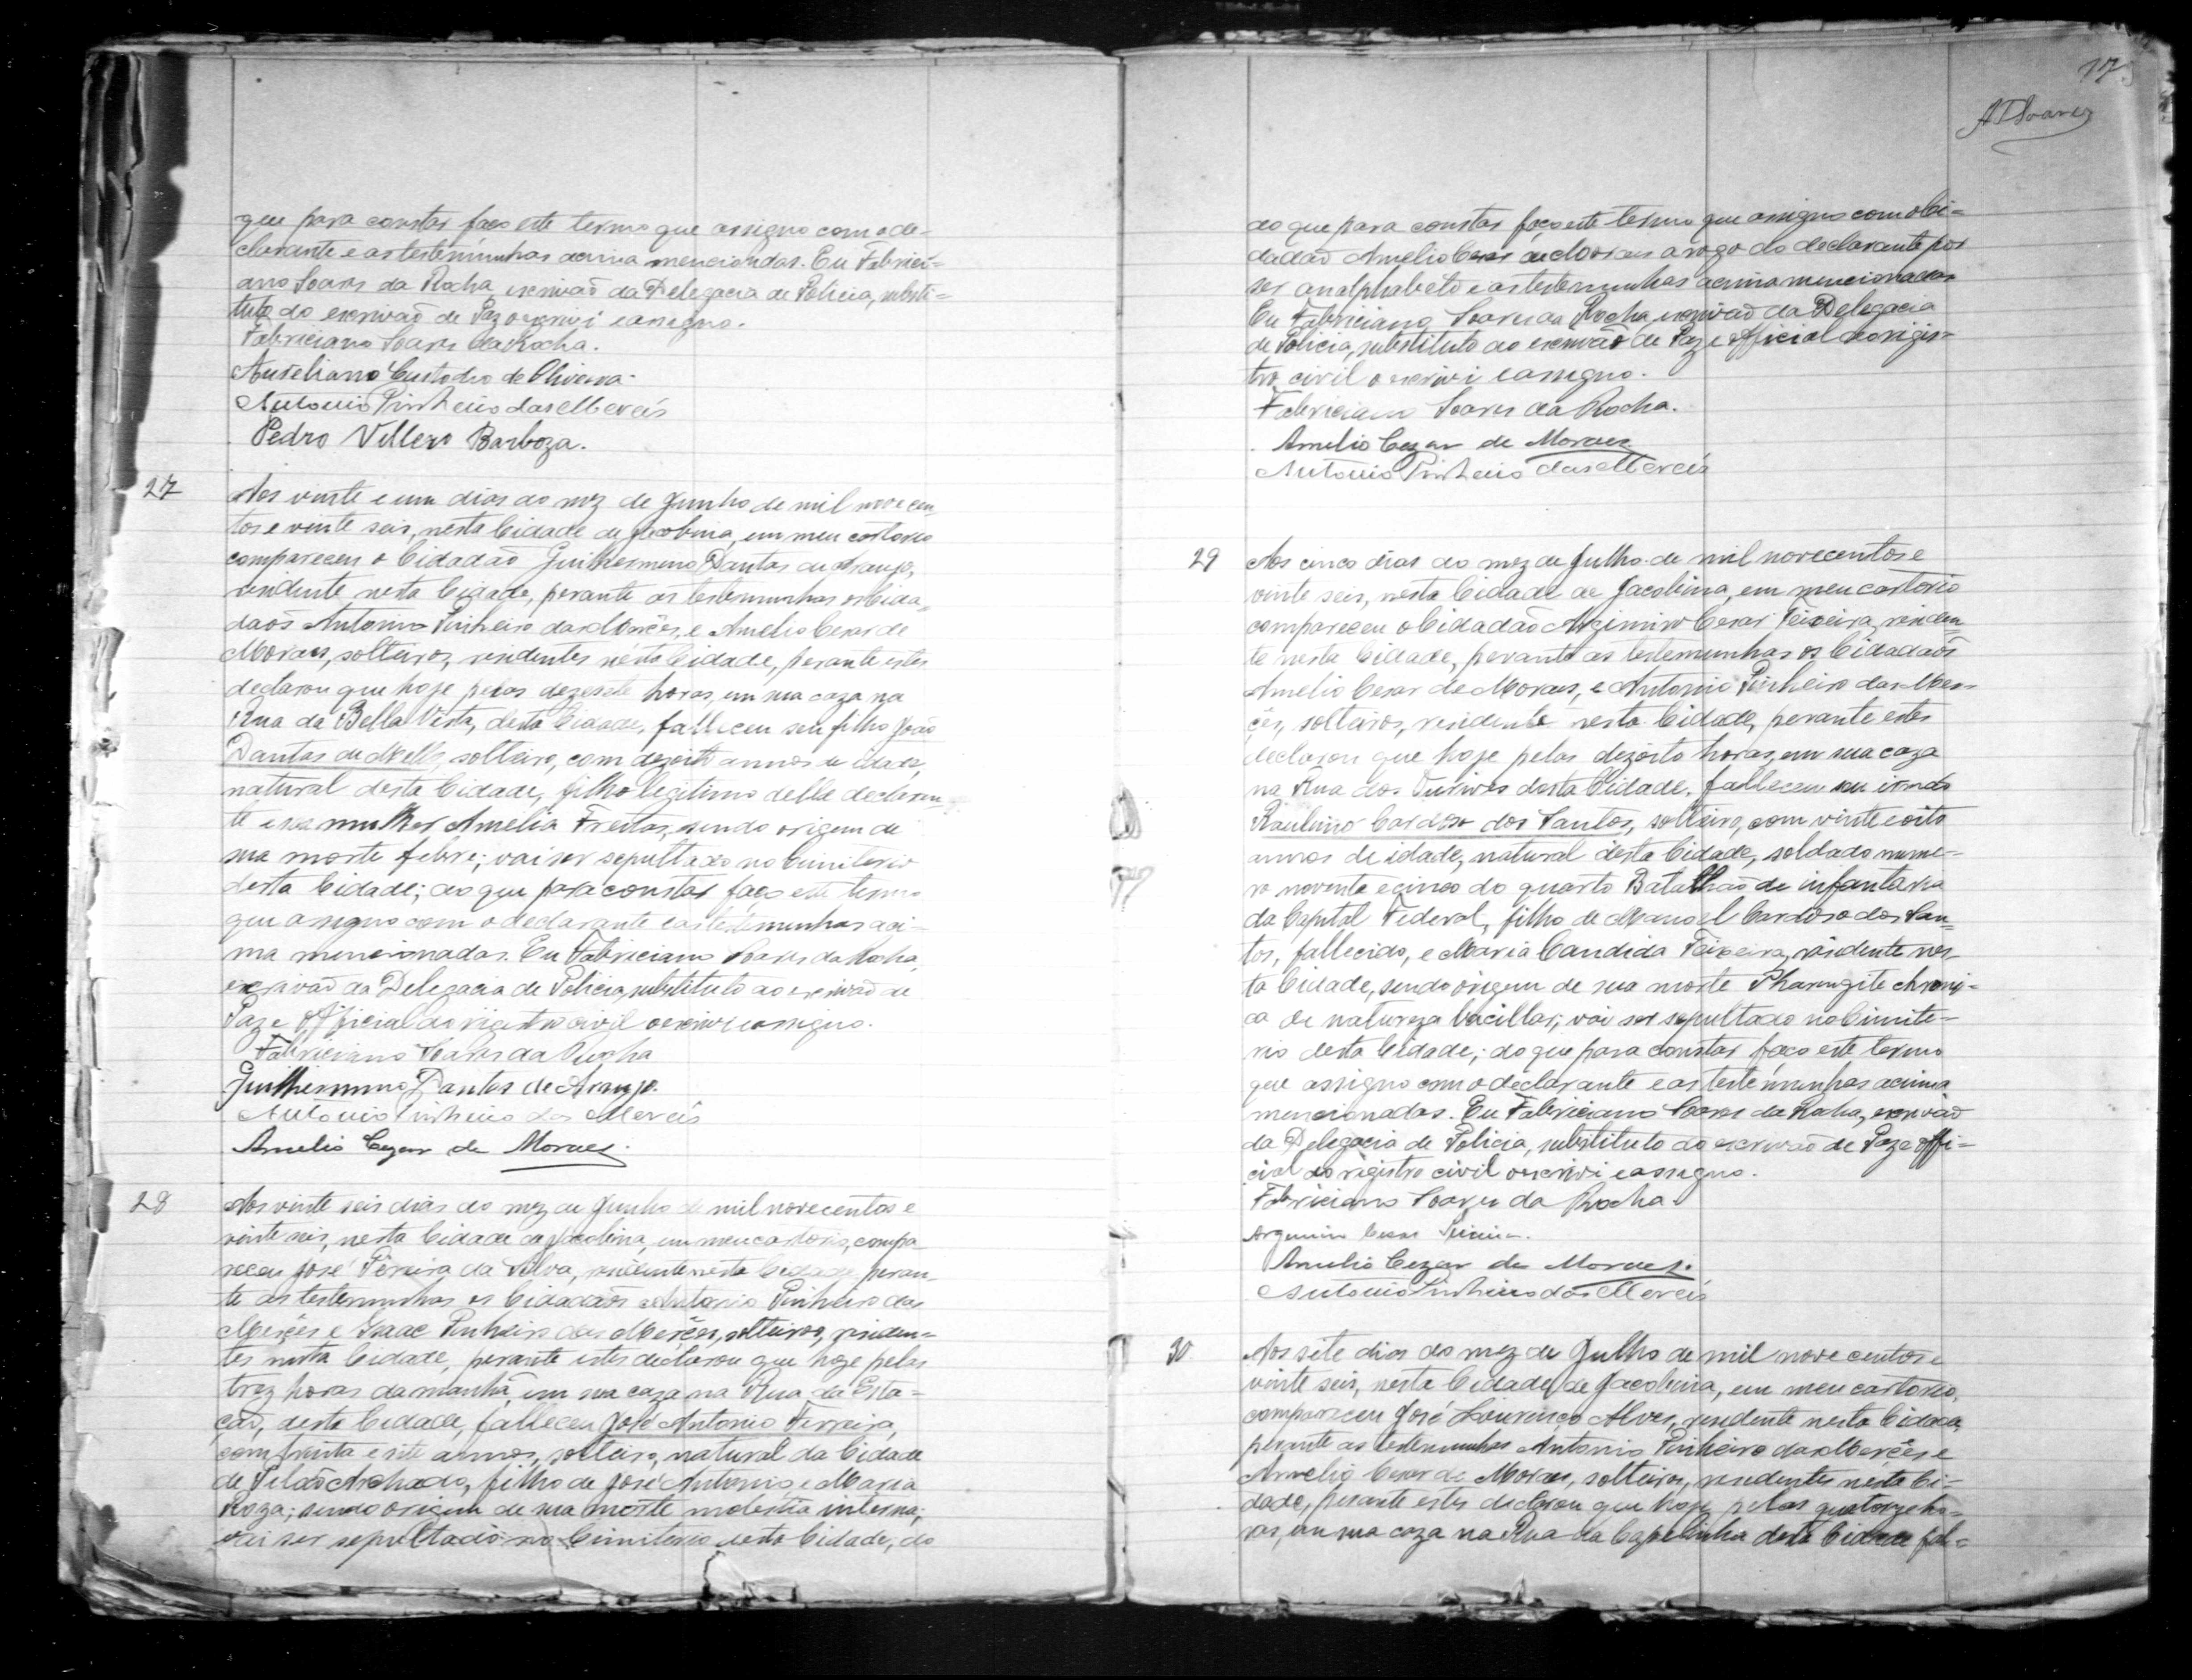 que para constar faço este termo que assigno com o de-
clarante e as testemunhas acima mencionadas. Eu Fabrici=
ano Soares da Rocha escrivaõ da Delegacia de Policia, substi=
tuto do escrivaõ de Paz o escrivi e assigno.
Fabriciano Soares da Rocha.
Aureliano Custodio de Oliveira.
Antonio Pinheiro das Mercês
Pedro Villero Barboza.
27
Aos vinte e um dias do mez de Junho de mil novecen
tos e vinte seis, nesta Cidade de Jacobina, em meu cartorio
compareceu o Cidadão Guilhermino Dantas de Araujo,
residente nesta Cidade, perante as testemunhas os Cida=
daõs Antonio Pinheiro das Mercês, e Amelio Cesar de
Moraes, solteiros, residentes nésta Cidade, perante estes
declarou que hoje pelas dezesete horas, em sua caza na
Rua da Bella Vista, desta Cidade, falleceu seu filho João
Dantas de Mello, solteiro, com dezoito annos de idade,
natural desta Cidade, filho legitimo delle declaran
te e sua mulher Amelia Freitas, sendo origem de
sua morte febre; vai ser sepultado no Cimiterio
desta Cidade; do que para constar faço este termo
que assigno com o declarante e as testemunhas aci-
ma mencionadas. Eu Fabriciano Soares da Rocha,
escrivaõ da Delegacia de Policia, substituto do escrivaõ de
Paz e Official do rigistro civil o escrivi e assigno.
Fabriciano Soares da Rocha
Guilhermino Dantas de Araujo.
Antonio Pinheiro das Mercês
Amelio Cezar de Moraes.
28
Aos vinte seis dias do mez de Junho de mil novecentos e
vinte seis, nesta Cidade de Jacobina, em meu cartorio, compa
receu José Pereira da Silva, residente nesta Cidade, peran
te as testemunhas os Cidadaõs Antonio Pinheiro das
Mercês e Isaac Pinheiro das Mercês, solteiros, residen=
tes nesta Cidade, perante estes declarou que hoje pelas
trez horas da manhã, em sua caza na Rua da Esta=
çaõ, desta Cidade, falleceu José Antonio Ferreira,
com trinta e sete annos, solteiro, natural da Cidade
de Pilaõ Archado, filho de José Antonio e Maria
Roza; sendo origem de sua morte molestia interna;
vai ser sepultado no Cimiterio desta Cidade; do
17
A T Soares
do que para constar faço este termo que assigno com o Ci=
dadão Amelio Cesar de Moraes a rogo do declarante por
ser analphabeto e as testemunhas acima mencionadas
Eu Fabriciano Soares da Rocha, escrivaõ da Delegacia
de Policia, substituto do escrivaõ de Paz e Official do rigis=
tro civil o escrivi e assigno.
Fabriciano Soares da Rocha.
Amelio Cezar de Moraes
Antonio Pinheiro das Mercês
29
Aos cinco dias do mez de Julho de mil novecentos e
vinte seis, nesta Cidade de Jacobina, em meu cartorio
compareceu o Cidadão Argimiro Cesar Teixeira, residen
te nesta Cidade, perante as testemunhas os Cidadaõs
Amelio Cesar de Moraes, e Antonio Pinheiro das Mer=
cês, solteiros, residente nesta Cidade, perante estes
declarou que hoje pelas dezoito horas, em sua caza
na Rua dos Ourives desta Cidade, falleceu seu irmão
Raulino Cardozo dos Santos, solteiro, com vinte e oito
annos de idade, natural desta Cidade, soldado nume-
ro noventa e cinco do quarto Batalhão de infantaria
da Capital Federal, filho de Manoel Cardoso dos San=
tos, fallecido, e Maria Candida Teixeira, residente nes
ta Cidade, sendo origem de sua morte Pharngite chroni=
ca de natureza bacillar; vai ser sepultado no Cimite=
rio desta Cidade; do que para constar faço este termo
que assigno com o declarante e as testemunhas acima
mencionadas. Eu Fabriciano Soares da Rocha, escrivaõ
da Delegacia de Policia, substituto do escrivaõ de Paz e Offi=
cial do rigistro civil o escrivi e assigno.
Fabriciano Soares da Rocha.
Argemiro Cesar Teixeira.
Amelio Cezar de Moraes.
Antonio Pinheiro das Mercês
30
Aos sete dias do mez de Julho de mil novecentos e
vinte seis, nesta Cidade de Jacobina, em meu cartorio,
compareceu José Lourenço Alves, residente nesta Cidade,
perante as testemunhas Antonio Pinheiro das Mercês e
Amelio Cesar de Moraes, solteiros, residentes nésta Ci=
dade, perante estes declarou que hoje pelas quatorze ho=
ras, em sua caza na Rua da Capelinha desta Cidade fal=